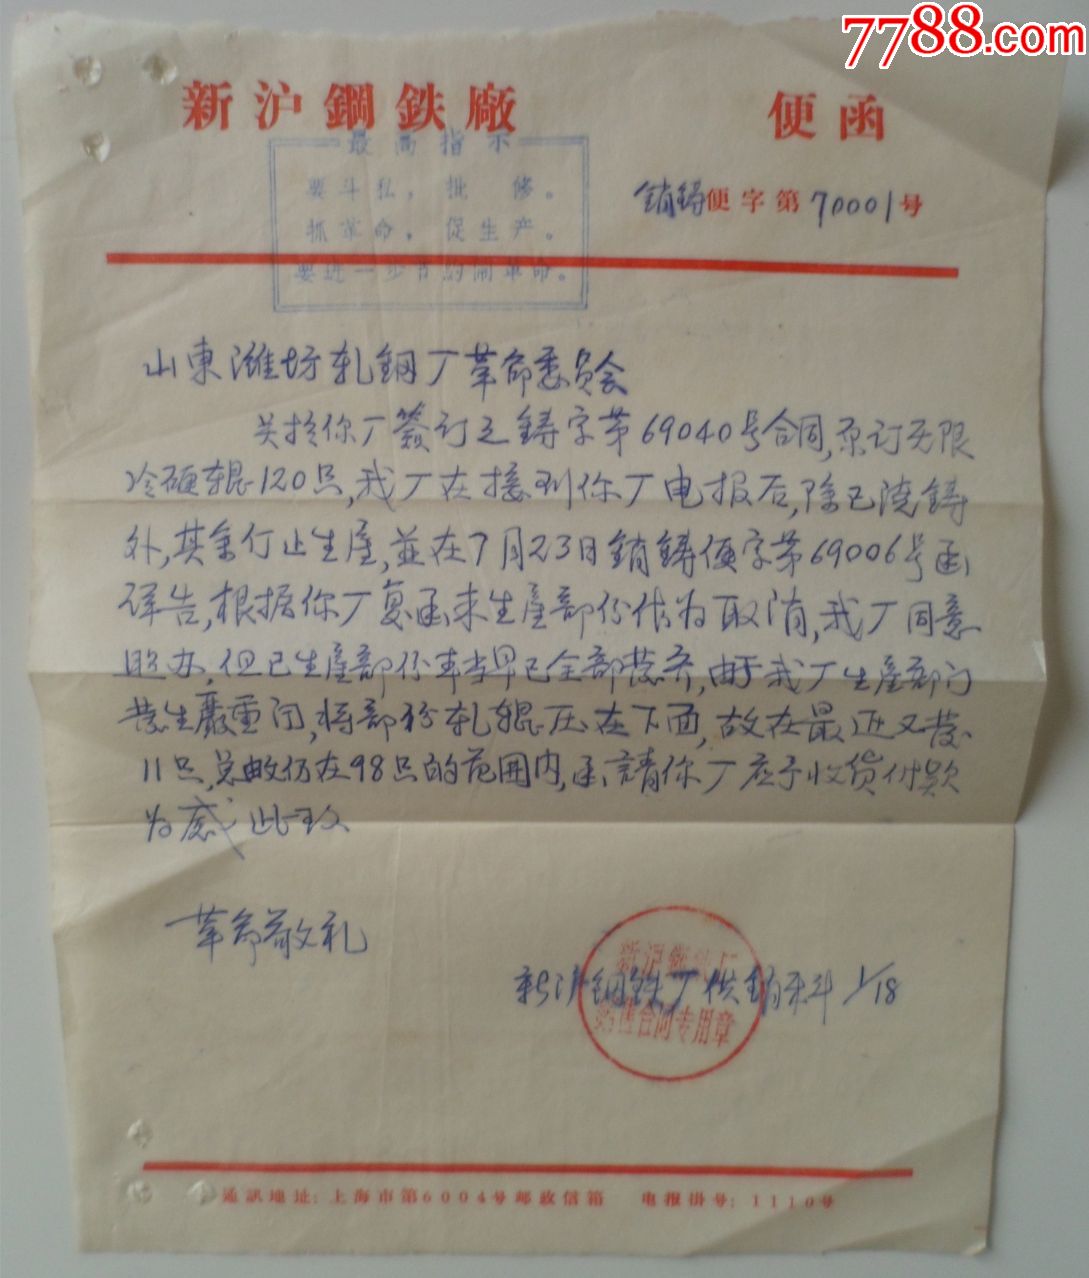 7788.com
新沪鋼鉄廠 便函
最高指示
要斗私，批修。
抓革命，促生产。
要进一步节约闹革命。
销鋳便字第70001号
山東潍坊轧鋼厂革命委员会
关於你厂簽订之鋳字第69040号合同，原订无限
冷硬辊120只，我厂在接到你厂电报后，除已浇鋳
外，其余停止生產，並在7月23日销鋳便字第69006号函
详告，根据你厂复函未生產部份作为取消，我厂同意
照办，但已生產部份 早已全部發齐，由于我厂生產部门
發生嚴重 ，将部份轧辊压在下面，故在最近又發
11只，总数仍在98只的范围内，函請你厂应予收货付款
为感 此致
革命敬礼
新沪鋼鉄厂供销科 1/18
新沪鋼鉄厂
销售合同专用章
通訊地址：上海市第6004号邮政信箱 电报掛号：1110号